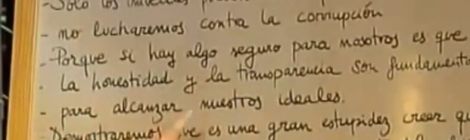 - Solo los
- no lucharemos contra la corrupción
- Porque si hay algo seguro para nosotros es que
- La honestidad y la transparencia son fundament
- para alcanzar nuestros ideales.
- Demostraremos que es una gran estupidez creer q